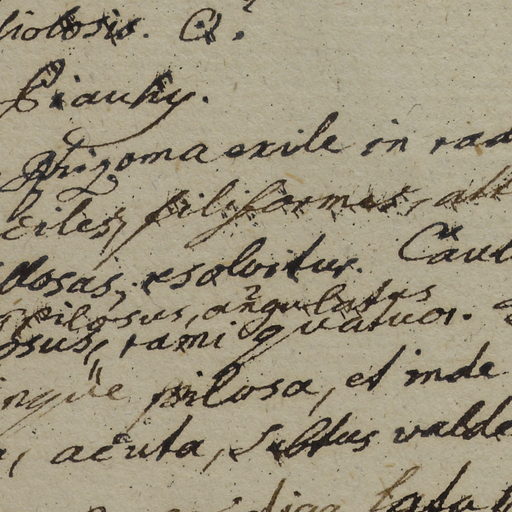 liolosis. Ct.
Piauhy.
Rhizoma exile in rad
ciles, filiformes, alt
llosas, resolvitur. Caul
pilosus, angulatus
osus, rami quatuor.
inque pilosa, et inde
, acuta, subtus valde
lata